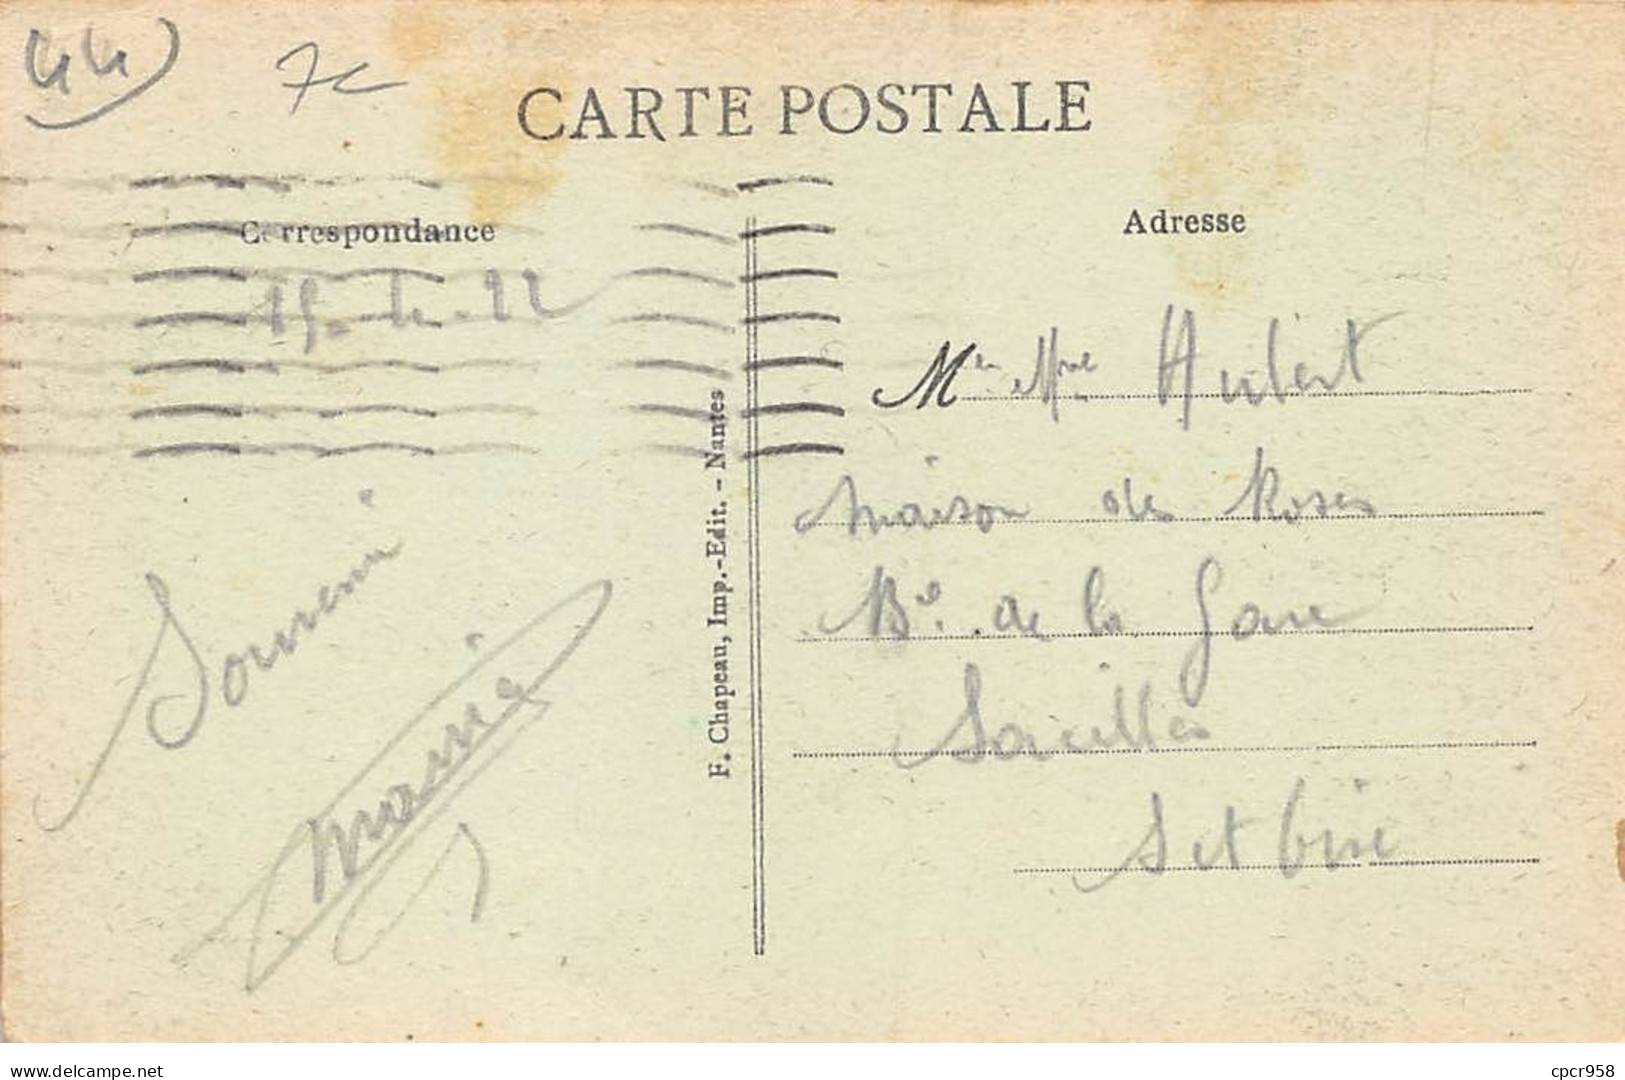 44)
7c
CARTE POSTALE
Correspondance
Adresse
15-4-22
Souvenir
Marie
F. Chapeau, Imp.-Edit. - Nantes
Mr Mme Hubert
Maison des Roses
Bd. de la Gare
Sarcelles
S et Oise
www.delcampe.net
cpcr958